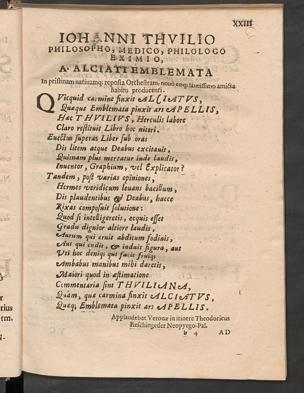 XXIII
IOHANNI THVILIO
PHILOSOPHO, MEDICO, PHILOLOGO
EXIMIO,
A. ALCIATI EMBLEMATA
In pristinam reposta Orchestram, novo amicitia
habitu producenti.
QVicquid carmine finxit ALCIATVS,
Quaque Emblemata pinxit ars APELLIS,
Hac THVILIVS, Herculis labore
Claro restituis Libro hoc niteri.
Euectus superas Liber sub oras
Dis litem atque Deabus excitauit,
Quisnam plus mereatur inde laudis,
Inuentor, Graphium, vel Explicator?
Tandem, post varias opiniones,
Hermes veridicum leuans bacillum,
Dis plaudentibus & Deabus, hacce
Rixas composuit solutione:
Quod si intelligeretis, ecquis esset
Gradu dignior altiore laudis,
Aurum qui eruit abditum fodinis,
Aut qui cudit, & induit figura, aut
Vti hoc deniqs qui facit fruiqs
Ambabus manibus mihi daretis,
Maiori quod in æstimatione
Commentaria sint THVILIANA,
Quàm, quæ carmina finxit ALCIATVS,
Quæq; Emblemata pinxit ars APELLIS.
Applaudebat Veronæ in itinere Theodoricus
Neopyrgo-Pal.
b 4 AD